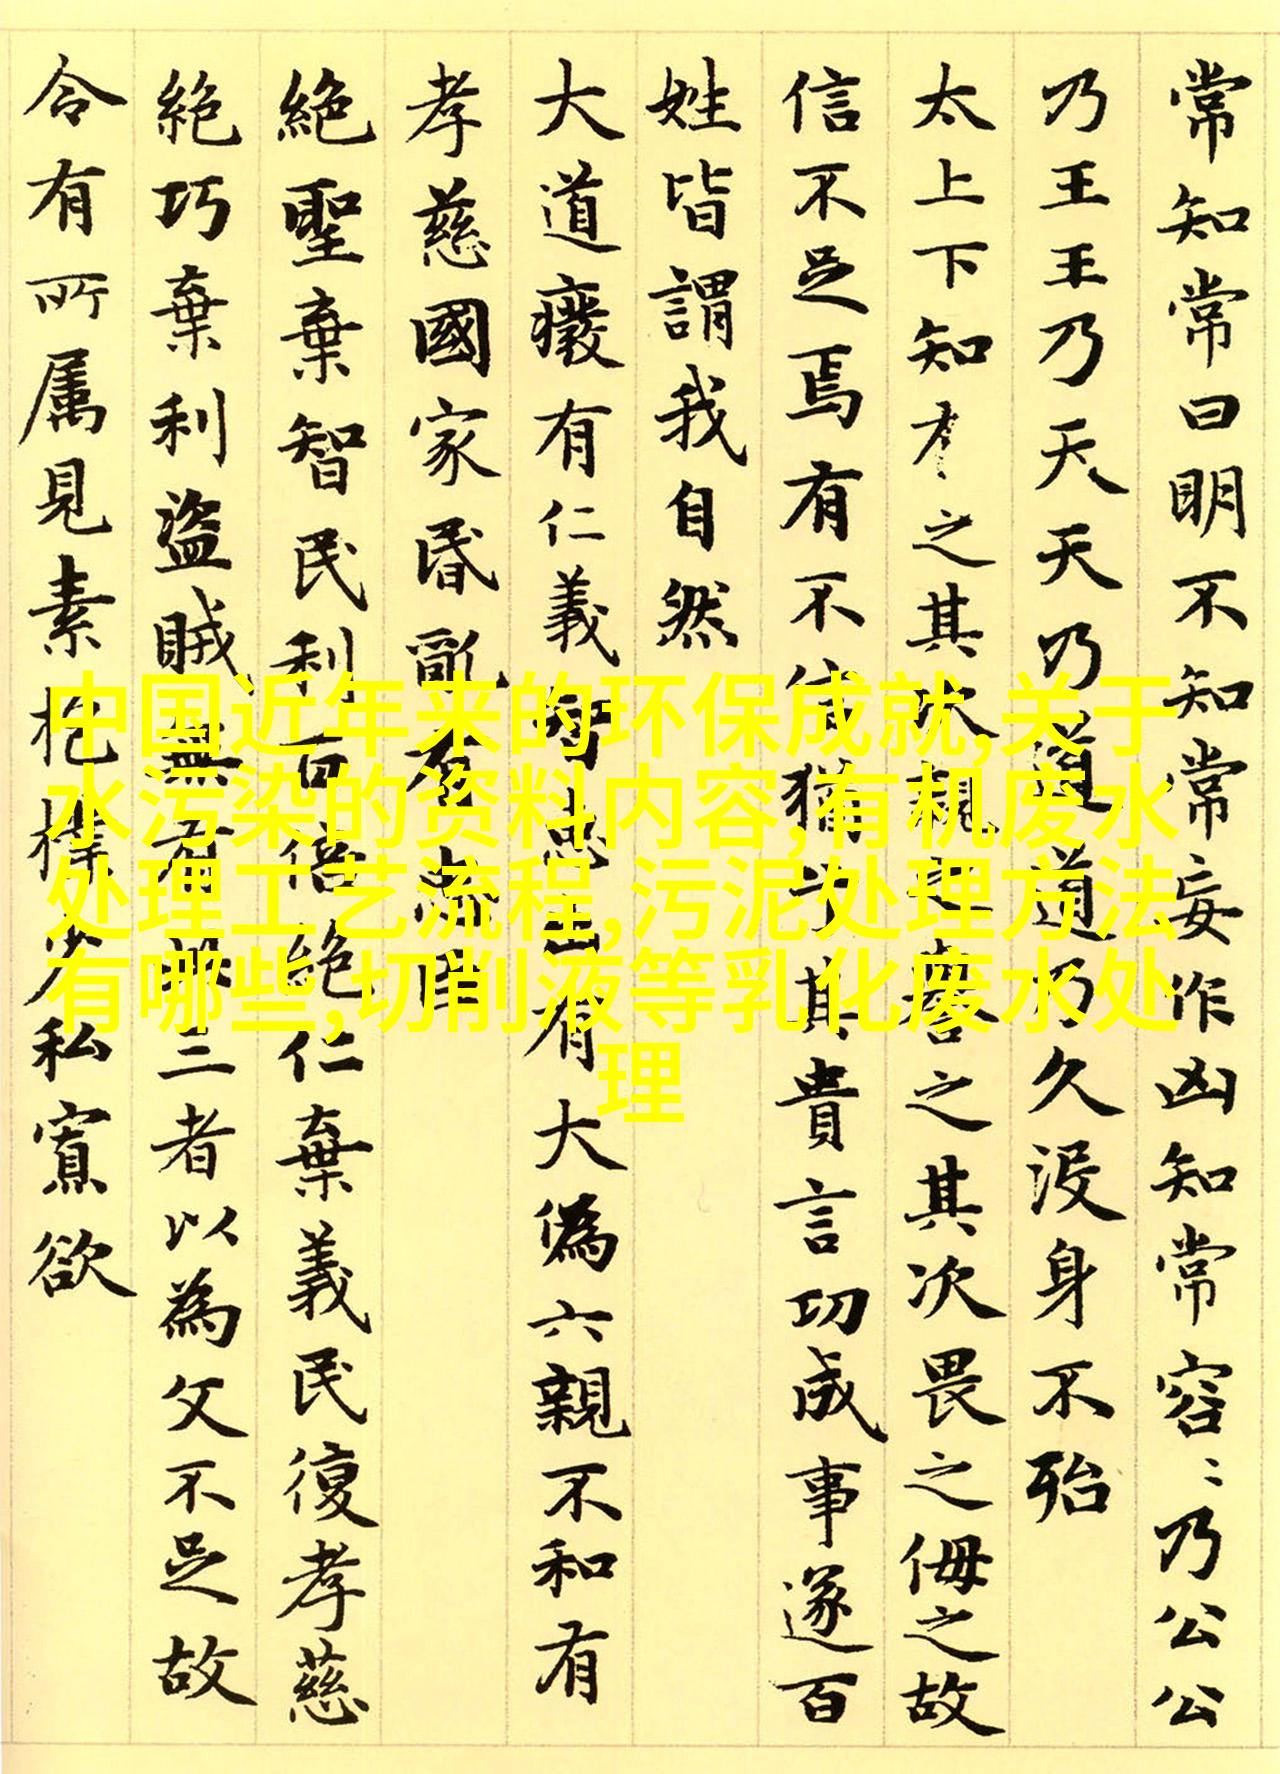 常知常曰明不知常妄作凶知常容〻乃公公
乃王王乃天天乃道道乃久没身不殆
太上下知有之其次親之譽之其次畏之侮之故
信不足焉有不信猶兮其貴言功成事遂百
姓皆謂我自然
大道癈有仁義智惠出有大偽六親不和有
孝慈國家昏亂有忠臣
絕聖棄智民利百倍絕仁棄義民復孝慈
絕巧棄利盜賊無有此三者以為文不足故
令有所属見素抱樸少私寡欲
中国近年来的环保成就,关于
水污染的资料内容,有机废水
处理工艺流程,污泥处理方法
有哪些,切削液等乳化废水处
理